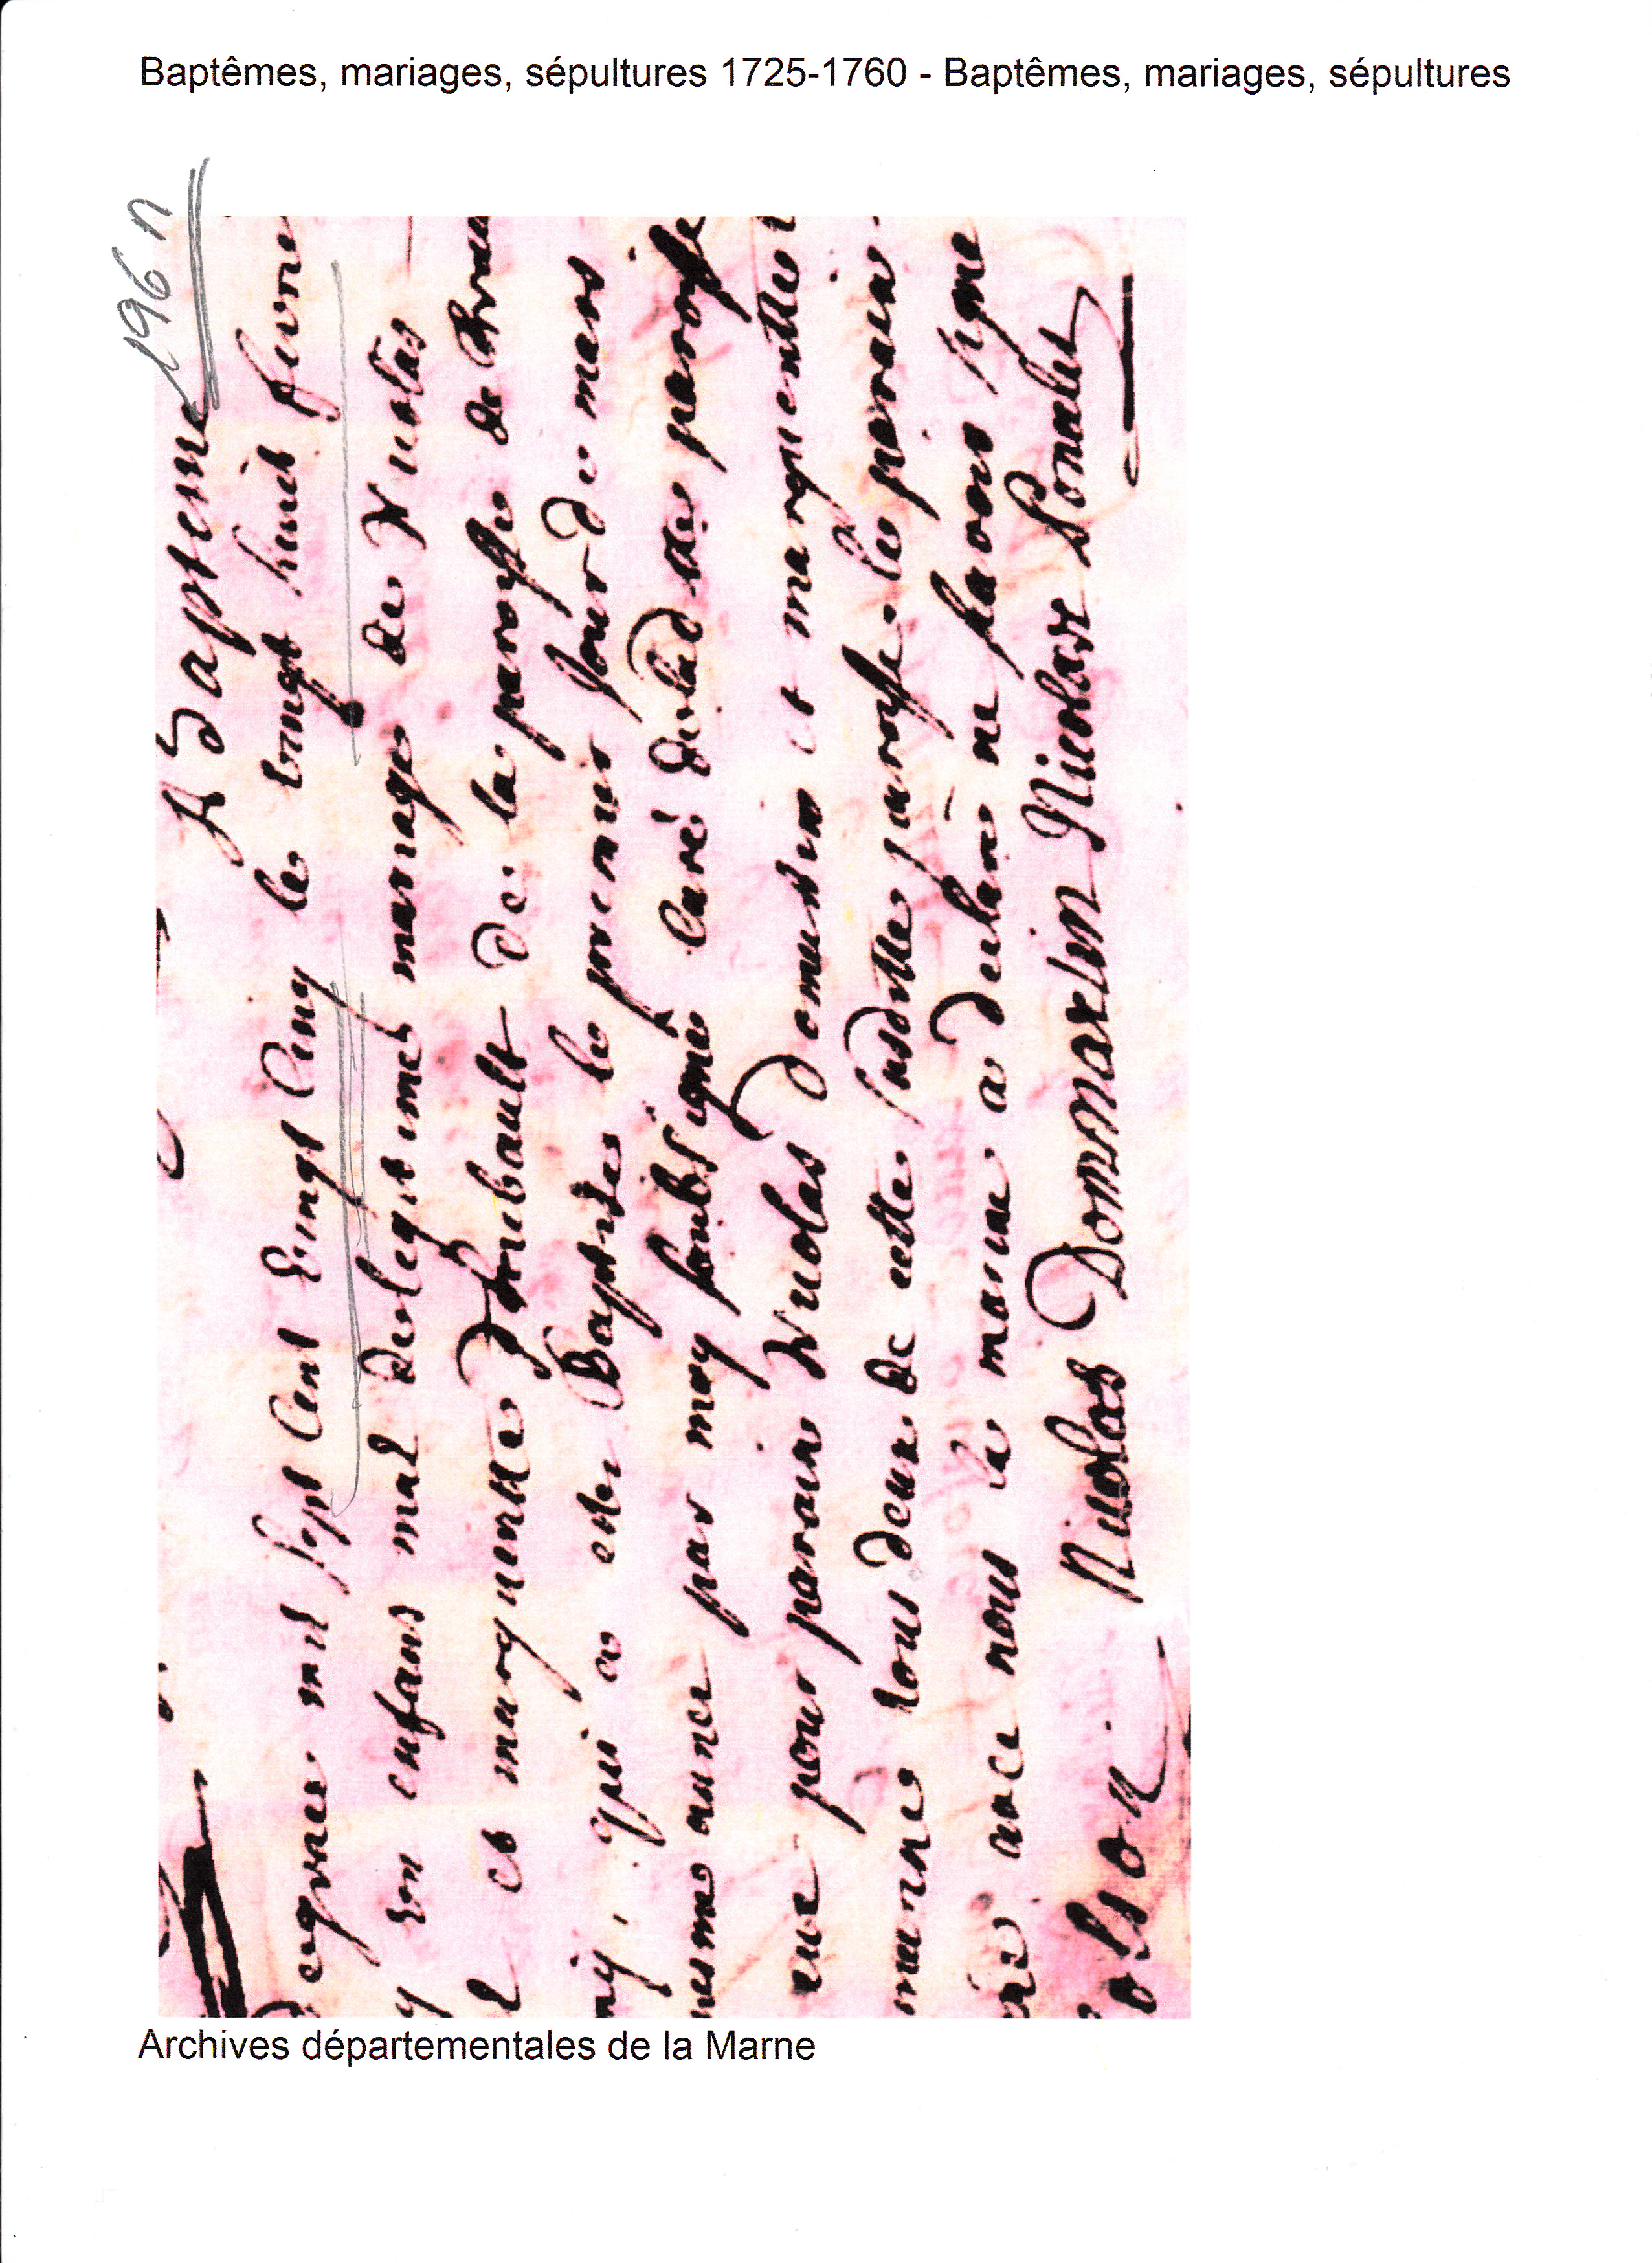 Baptêmes, mariages, sépultures 1725-1760 - Baptêmes, mariages, sépultures
196 n
Bapteme
mil sept Cent vingt Cinq le vingt huit fevrie
y un enfans mal de legitime mariage de Nicolas
et margueritte Thiebault de la paroisse de
ny. qui a ete Baptisee le premier jour de mars
mesme annee par moy soubsigné Curé de la de paroisse
eue pour parain Nicolas et margueritte
marine tous deux de cette susditte paroisse. le parain
avec nous la marine a declaré ne savoir signe
Nicolas Dommartin Nicolas Ponalet
Archives départementales de la Marne